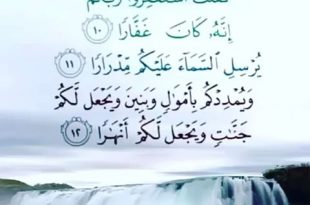 فقلت استغفروا ربكم
إِنَّهُۥ كَانَ غَفَّارًا ١٠
يُرْسِلِ السَّمَآءَ عَلَيْكُم مِّدْرَارًا ١١
وَيُمْدِدْكُم بِأَمْوَٰلٍ وَبَنِينَ وَيَجْعَل لَّكُمْ
جَنَّٰتٍ وَيَجْعَل لَّكُمْ أَنْهَٰرًا ١٢